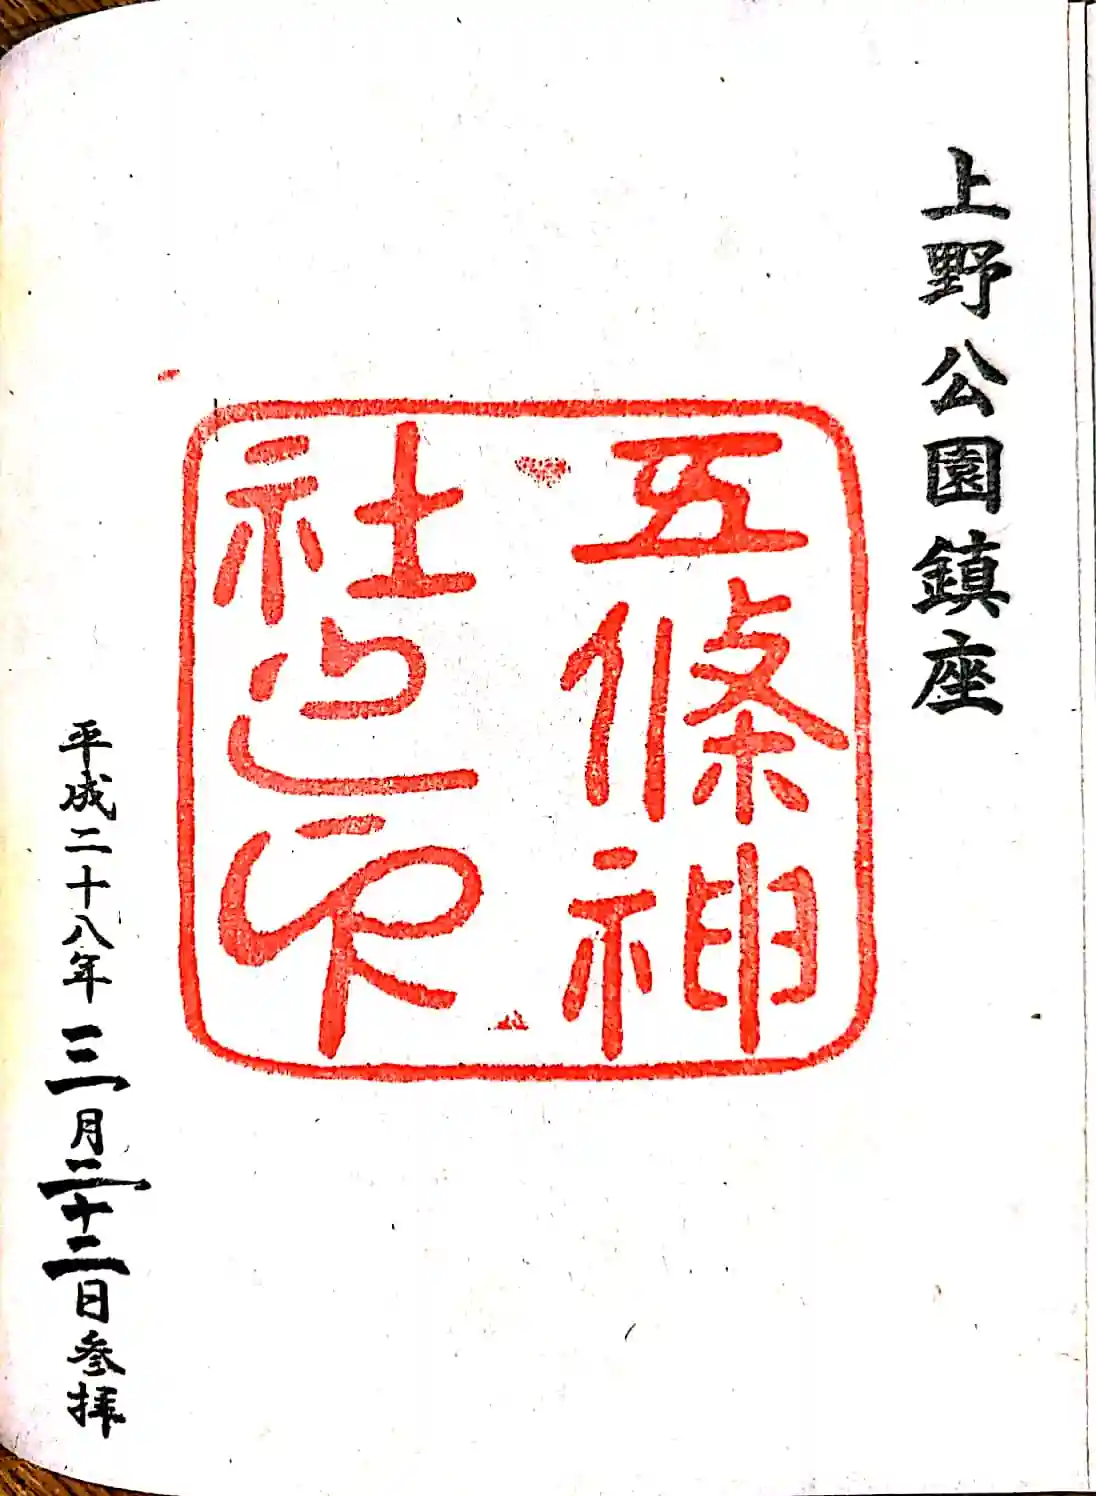 上野公園鎮座
五條神
社之印
平成二十八年三月二十二日参拝